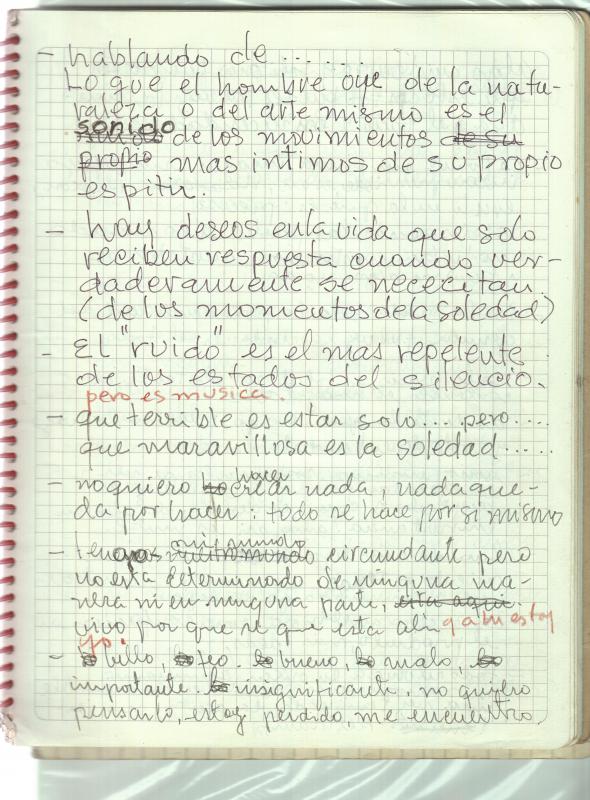 - hablando de . . . . . .
Lo que el hombre oye de la natu-
raleza o del arte mismo es el
sonido de los movimientos de su
propio mas intimos de su propio
espitir.
- hay deseos en la vida que solo
reciben respuesta cuando ver-
daderamente se nececitan.
(de los momentos de la soledad)
- El "ruido" es el mas repelente
de los estados del silencio.
pero es musica.
- que terrible es estar solo.... pero....
que maravillosa es la soledad.....
- no quiero hacer crear nada, nada que-
da por hacer: todo se hace por si mismo
- mi mundo circundante pero
no esta determinado de ninguna ma-
nera ni en ninguna parte, esta aqui
vivo por que se que esta ahi y ahi estoy
yo.
- lo bello, lo feo. lo bueno, lo malo, lo
importante. lo insignificante. no quiero
pensarlo, estoy perdido, me encuentro.